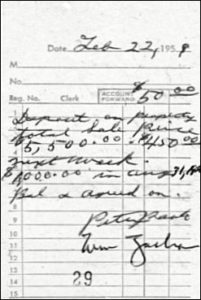 Date Feb 22, 1959
M
No.
Reg. No. Clerk ACCOUNT FORWARD $50.00
1 Deposit on property
total Sale Price
$5,500.00. $450.00
next week.
$1,000.00 in aug 31,
Bal as agreed on.
9
10
11
12
13
14 29
15